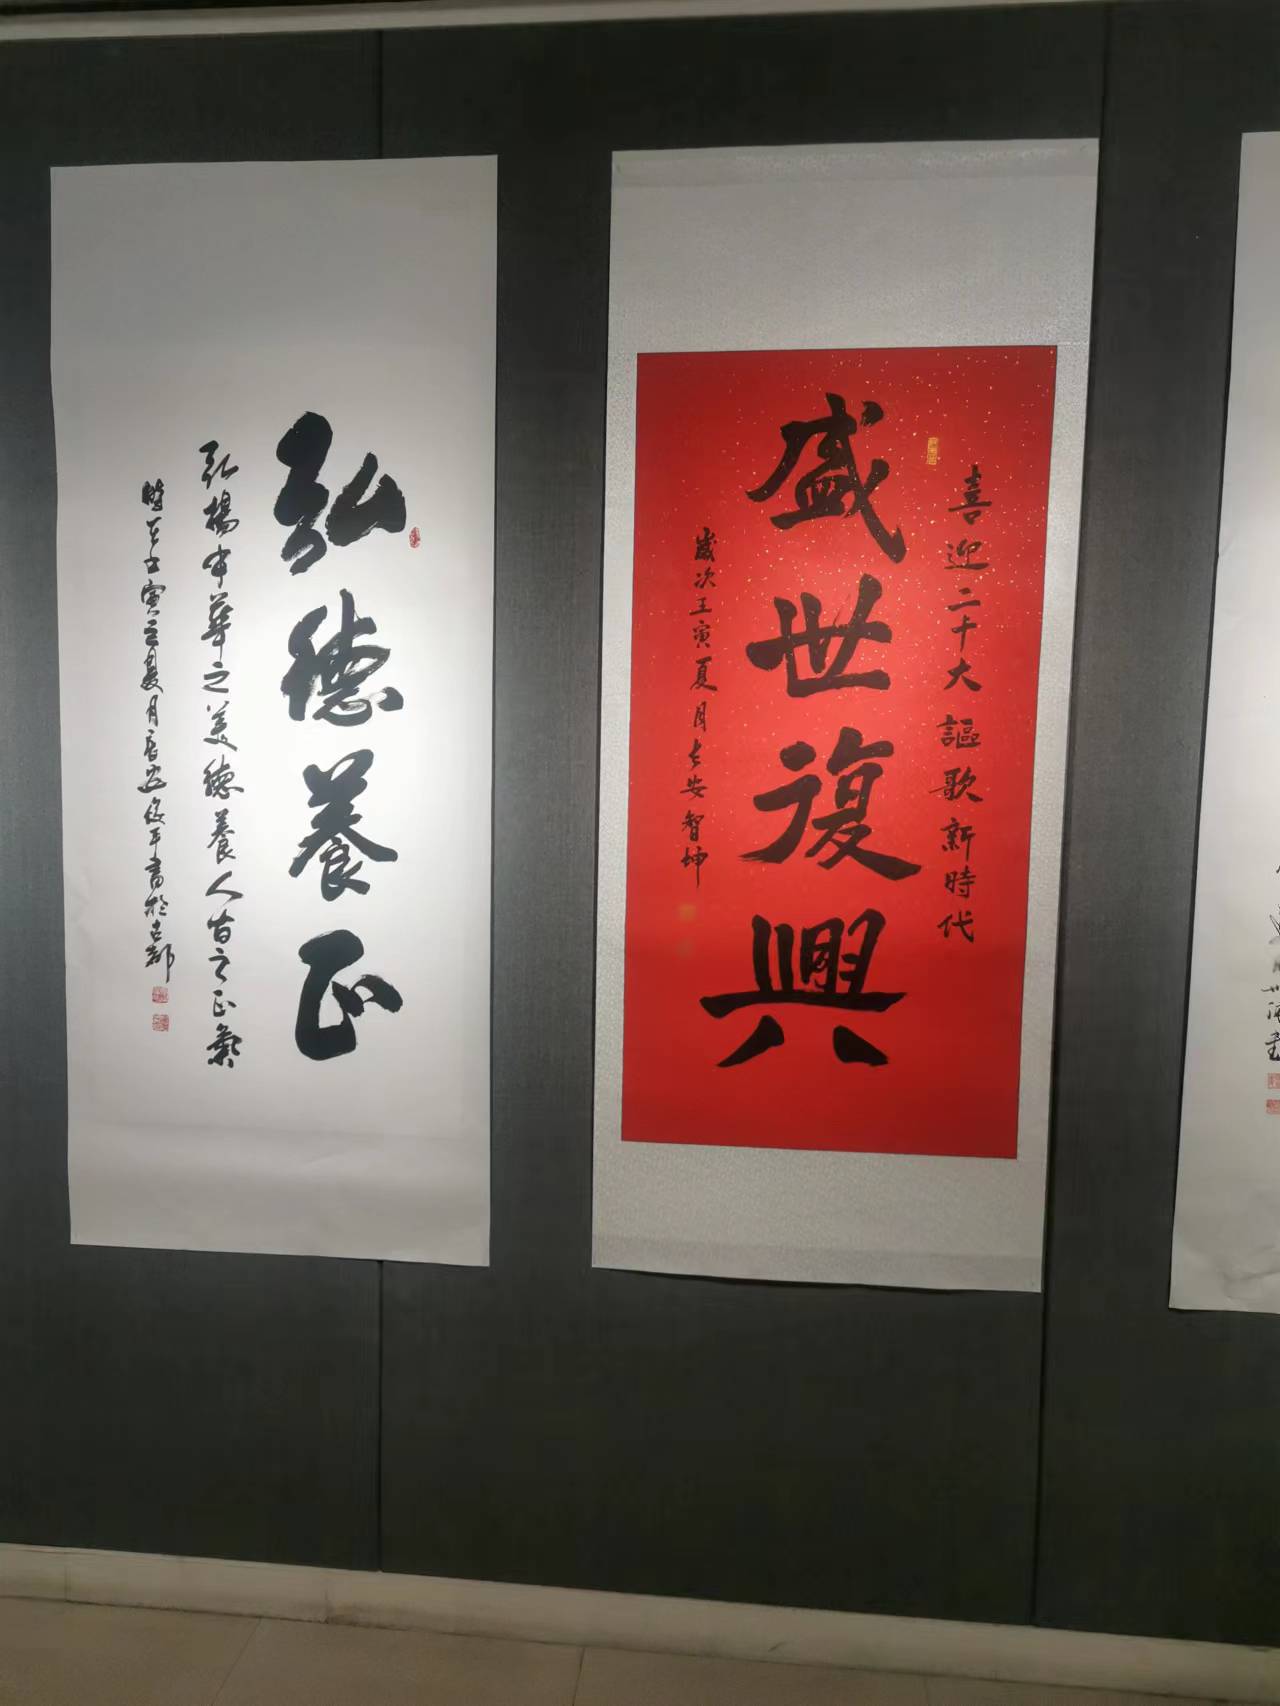 喜迎二十大謳歌新時代
盛世復興
歲次壬寅夏月長安智坤
弘德養正
弘揚中華之美德養人者之正氣
時在壬寅之夏月君安後平書於古都